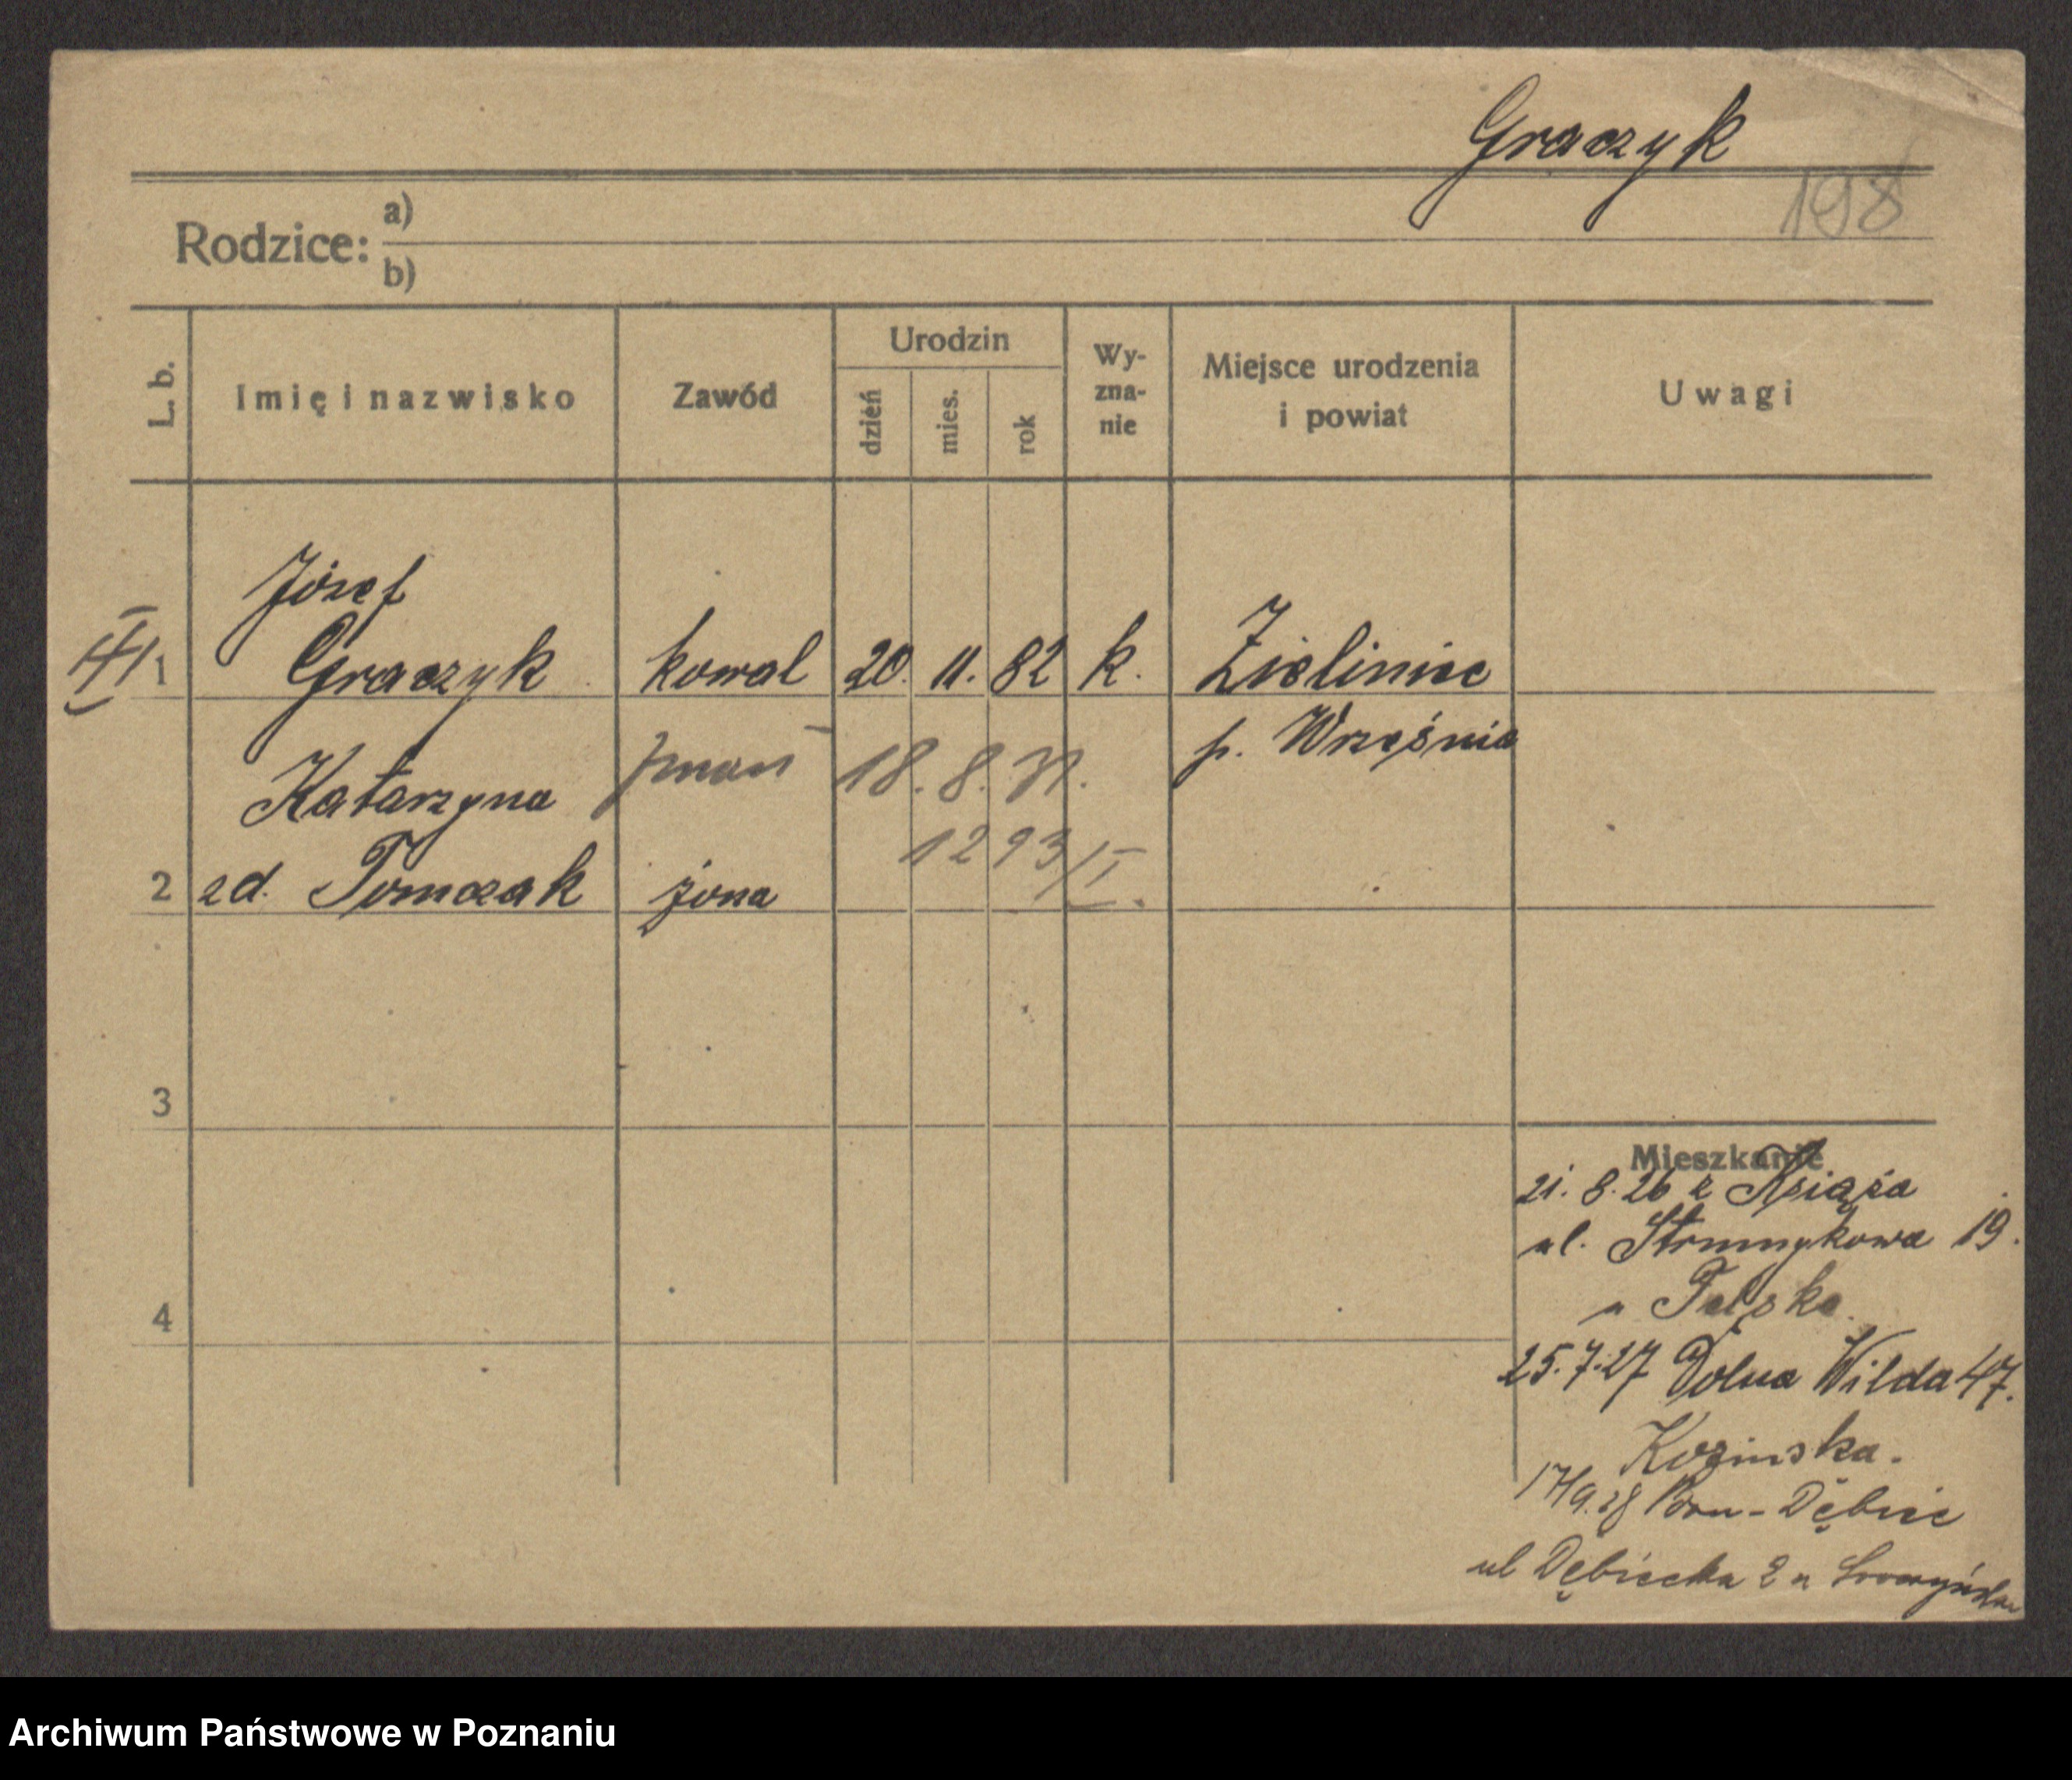 Graczyk
198
Rodzice:
a)
b)
L. b.
Imię i nazwisko
Zawód
Urodzin
dzień
mies.
rok
Wy-
zna-
nie
Miejsce urodzenia
i powiat
Uwagi
Józef
1 Graczyk kowal 20. 11. 82 k. Zieliniec
p. Września
Katarzyna
zmarł 18. 8. 31.
1293/I.
2 zd. Tomczak żona
3
4
Mieszkanie
21. 8. 26 z Książa
ul. Strumykowa 19.
u
25.7.27 Dolna Wilda 47.
Kozinska.
17/9.28 Pozn-Dębiec
ul Dębiecka 2 u
Archiwum Państwowe w Poznaniu